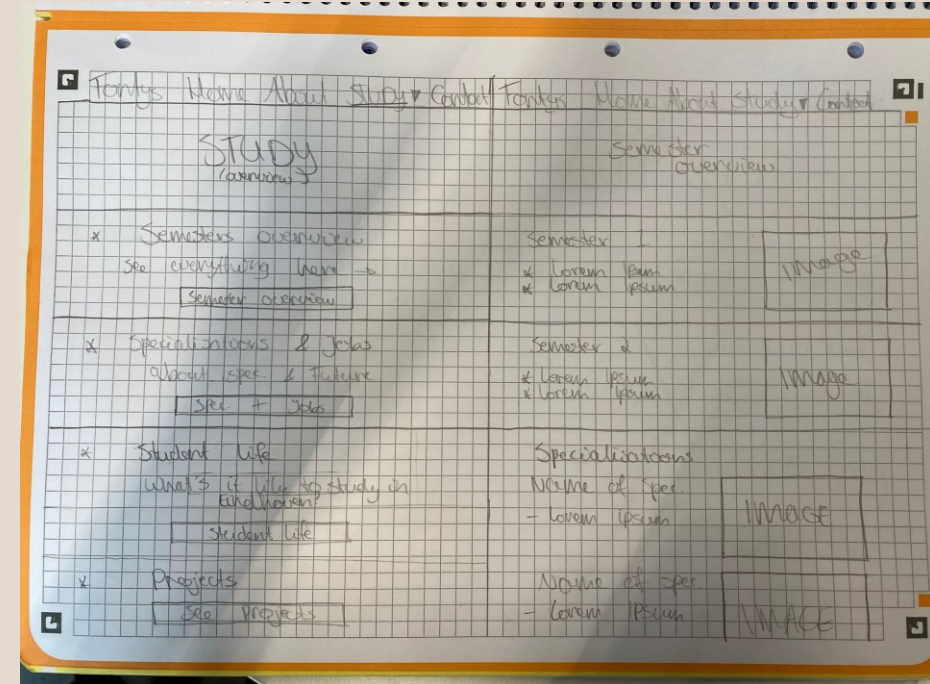 Fontys Home About Study ▾ Contact
STUDY
(overview)
* Semesters overview
see everything here →
Semester overview
* Specialisations & Jobs
about spec. & Future
Spec. + Jobs
* Student life
What's it like to study in
Eindhoven?
Student life
* Projects
See projects
Fontys Home About Study ▾ Contact
Semester
overview
Semester 1
* Lorem Ipsum
* Lorem Ipsum
Image
Semester 2
* Lorem Ipsum
* Lorem Ipsum
Image
Specialisations
Name of spec.
- Lorem ipsum
IMAGE
Name of spec.
- Lorem Ipsum
IMAGE